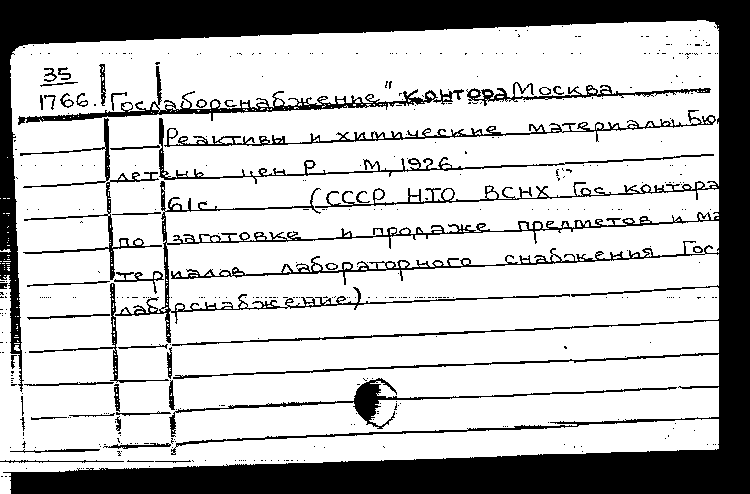 35
1766. Гослаборснабжение," контора Москва.
Реактивы и химические материалы. Бю
летень цен Р. М, 1926.
61с. (СССР НТО ВСНХ Гос. контора
по заготовке и продаже предметов и ма
териалов лабораторного снабжения Гос.
лаборснабжение)